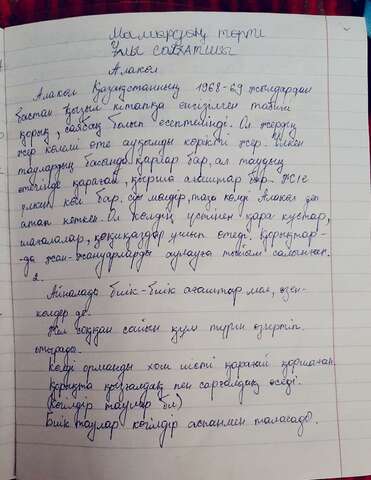 Мамырдың төрті
Ұлы саяхатшы
Алакөл
Алакөл Қазақстанның 1968-69 жылдардан
бастап қызыл кітапқа енгізілген табиғи
қорық, саябақ болып есептелінеді. Ол жердің
жер көлемі өте ауқымды көрікті жер. Үлкен
таулардың басында қарлар бар, ал таудың
етегінде қарағай, қырша ағаштар бар. Және
үлкен көл бар. суы мөлдір, таза көлді Алакөл деп
атап кеткен. Ол көлдің үстінен қара құстар,
шағалалар, қоқиқаздар ұшып өтеді. Қорықтар-
да жан-жануарларды аулауға тыйым салынған.
2.
Айналада биік-биік ағаштар мол, өзен-
көлдер де.
Жел соққан сайын құм түрін өзгертіп
отырады.
Көлді орманды хош иісті қарағай қоршаған.
Қорықта қызғалдақ пен сарғалдақ өседі.
(Көгілдір таулар бл)
Биік таулар көгілдір аспанмен таласады.